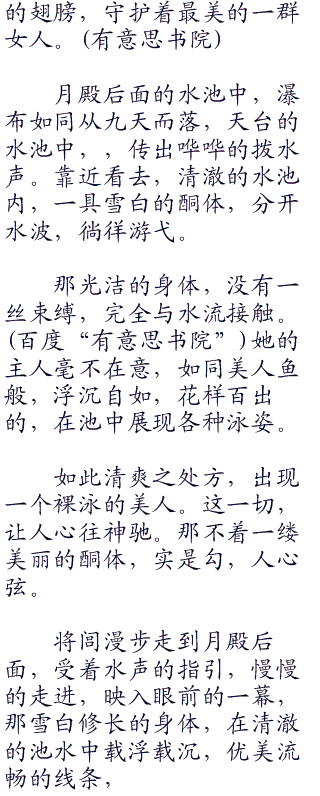 的翅膀，守护着最美的一群
女人。(有意思书院)
月殿后面的水池中，瀑
布如同从九天而落，天台的
水池中，，传出哗哗的拨水
声。靠近看去，清澈的水池
内，一具雪白的酮体，分开
水波，徜徉游弋。
那光洁的身体，没有一
丝束缚，完全与水流接触。
(百度“有意思书院”)她的
主人毫不在意，如同美人鱼
般，浮沉自如，花样百出
的，在池中展现各种泳姿。
如此清爽之处方，出现
一个裸泳的美人。这一切，
让人心往神驰。那不着一缕
美丽的酮体，实是勾，人心
弦。
将闾漫步走到月殿后
面，受着水声的指引，慢慢
的走进，映入眼前的一幕，
那雪白修长的身体，在清澈
的池水中载浮载沉，优美流
畅的线条，